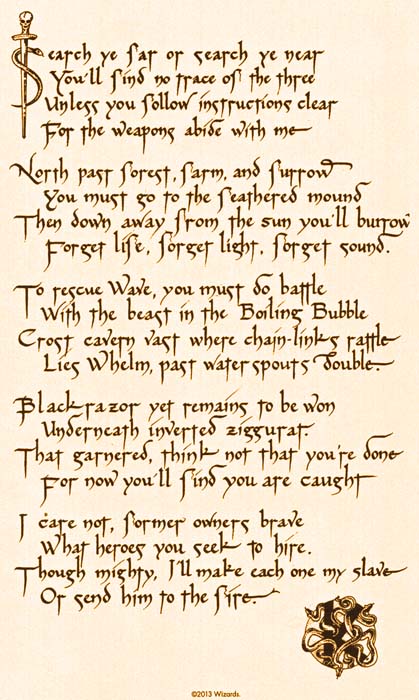 Search ye far or search ye near
You'll find no trace of the three
Unless you follow instructions clear
For the weapons abide with me
North past forest, farm, and furrow
You must go to the feathered mound
Then down away from the sun you'll burrow
Forget life, forget light, forget sound.
To rescue Wave, you must do battle
With the beast in the Boiling Bubble
Crost cavern vast where chain-links rattle
Lies Whelm, past waterspouts double.
Blackrazor yet remains to be won
Underneath inverted ziggurat.
That garnered, think not that you're done
For now you'll find you are caught
I care not, former owners brave
What heroes you seek to hire.
Though mighty, I'll make each one my slave
Or send him to the fire.
©2013 Wizards.